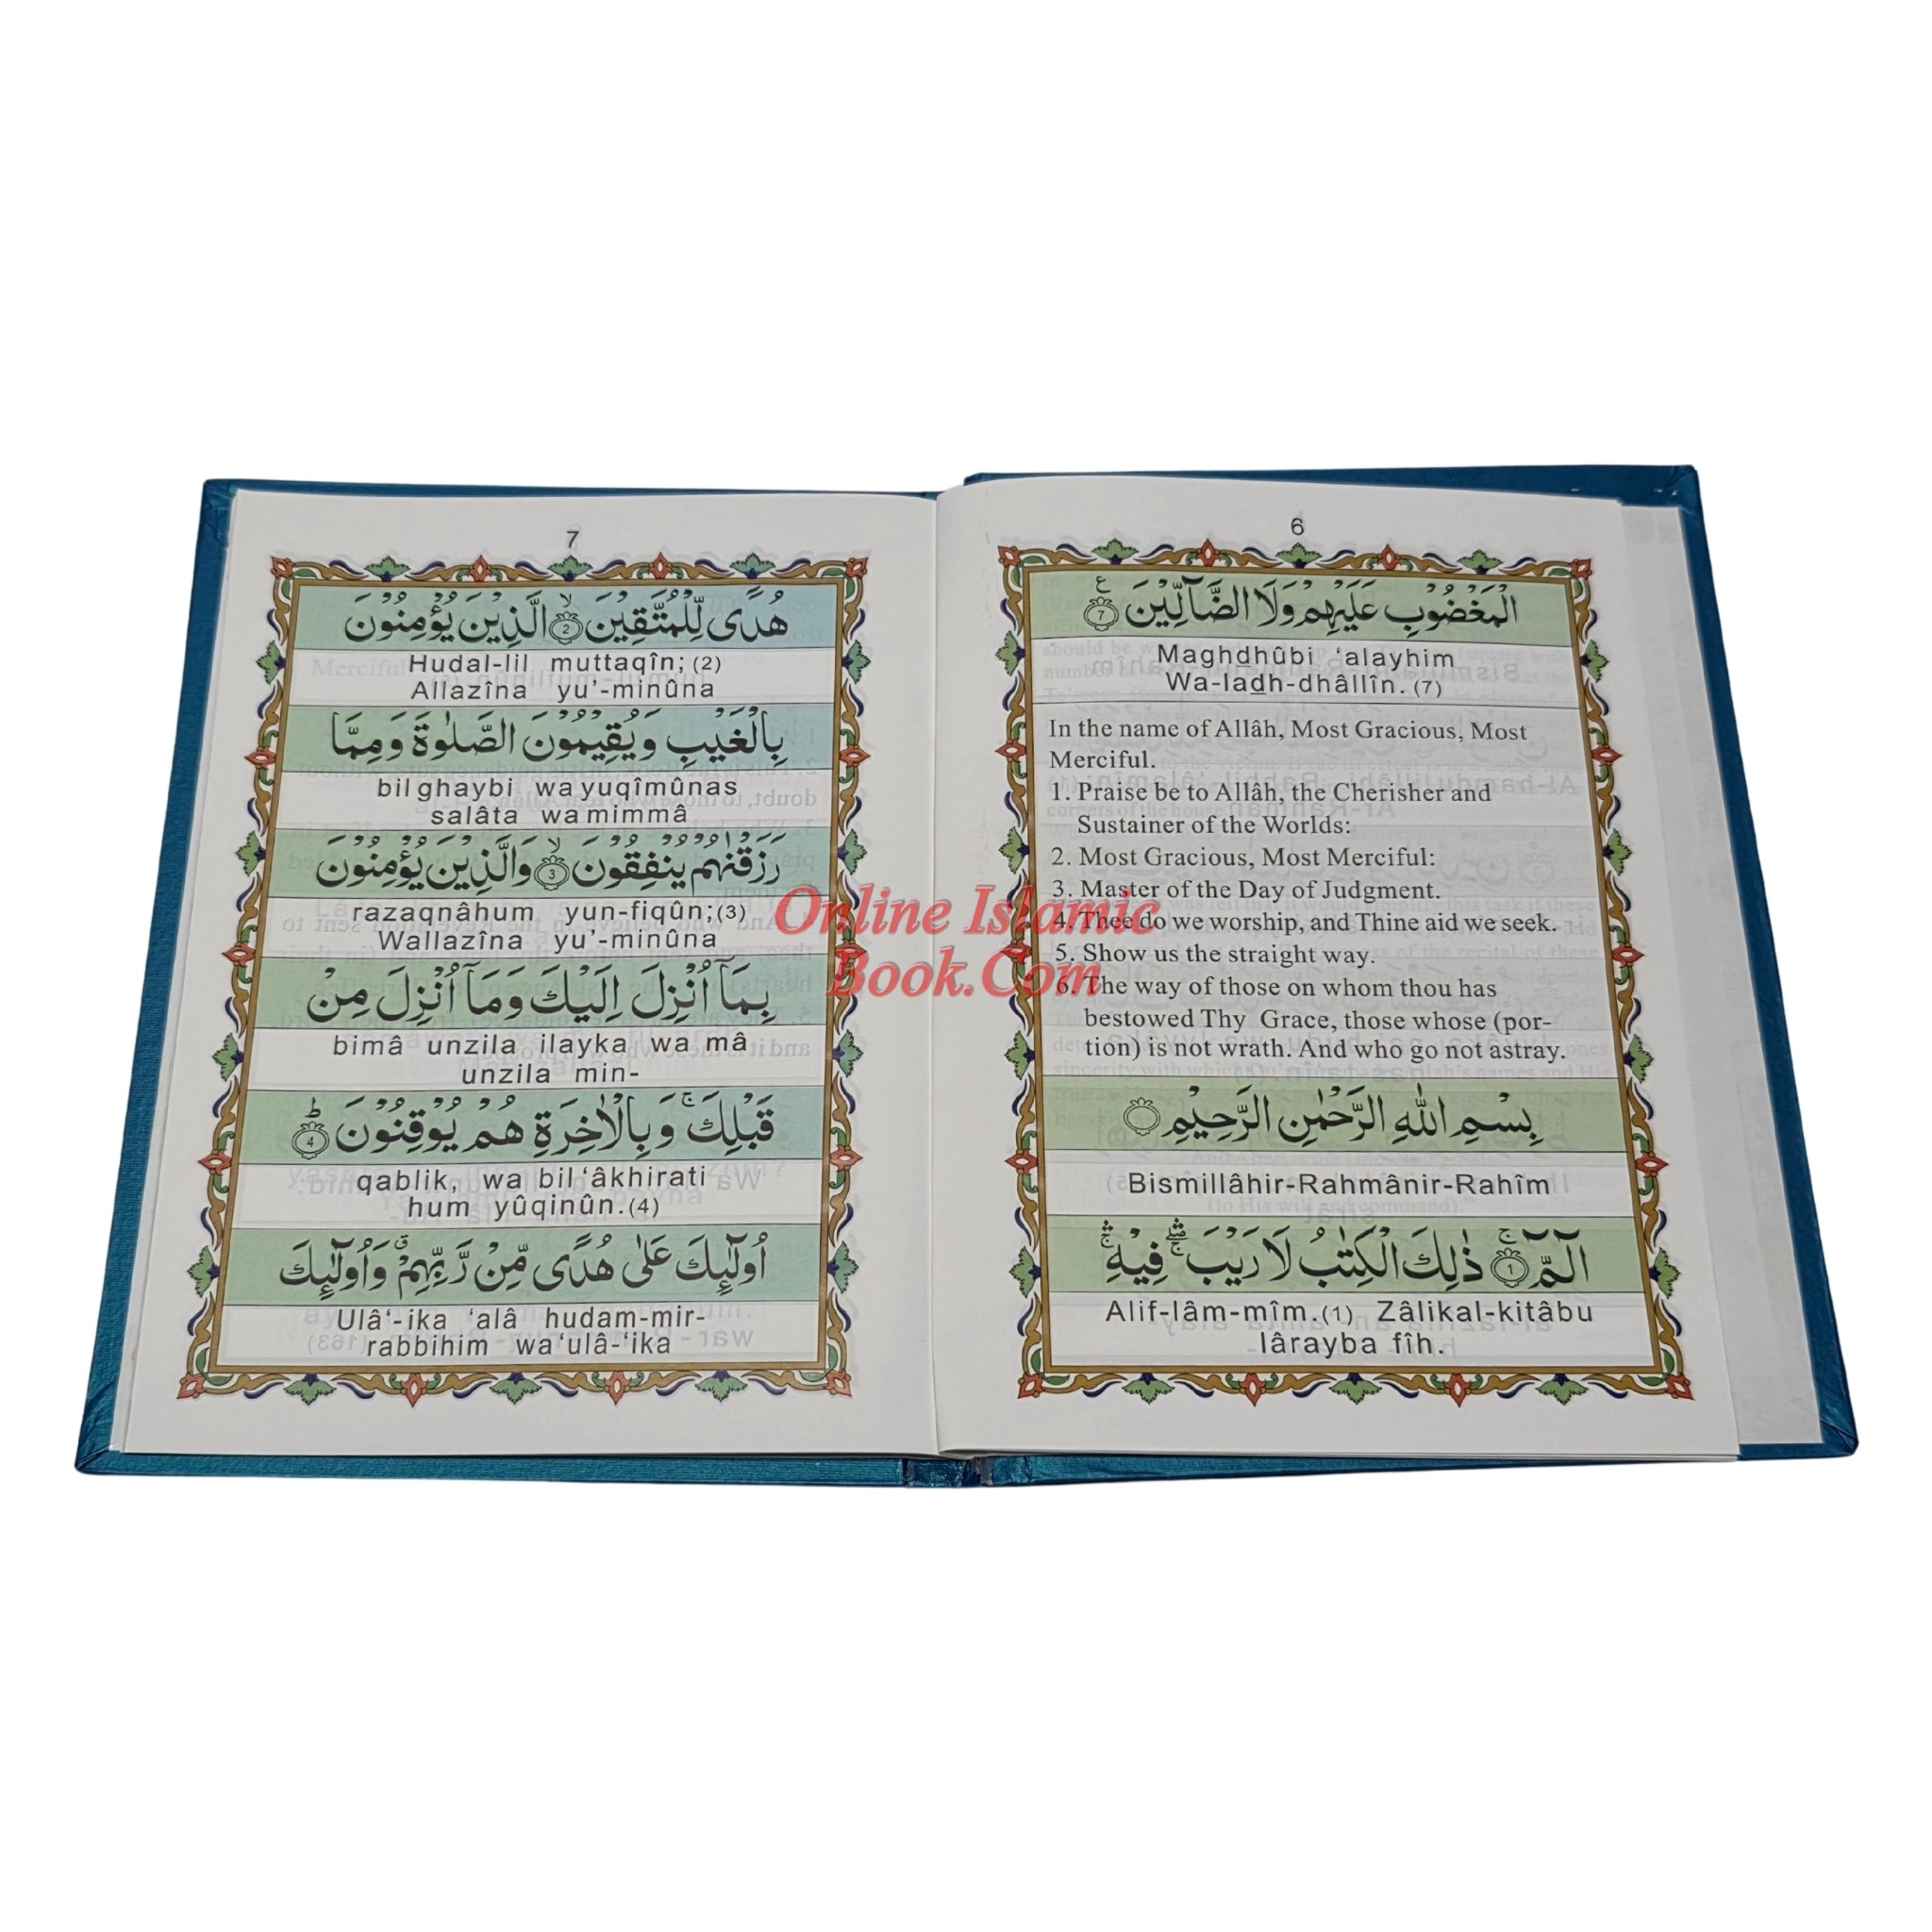 6
الْمَغْضُوْبِ عَلَيْهِمْ وَلَا الضَّآلِّيْنَ ۷ ع
Maghdhûbi ‘alayhim
Wa-ladh-dhâllîn. (7)
In the name of Allâh, Most Gracious, Most
Merciful.
1. Praise be to Allâh, the Cherisher and
Sustainer of the Worlds:
2. Most Gracious, Most Merciful:
3. Master of the Day of Judgment.
4. Thee do we worship, and Thine aid we seek.
5. Show us the straight way.
6. The way of those on whom thou has
bestowed Thy Grace, those whose (por-
tion) is not wrath. And who go not astray.
بِسْمِ اللهِ الرَّحْمٰنِ الرَّحِيْمِ
Bismillâhir-Rahmânir-Rahîm
الٓمّٓ ۚ 1 ذٰلِكَ الْكِتٰبُ لَا رَيْبَ ۛۖۚ فِيْهِ ۛۚ
Alif-lâm-mîm.(1) Zâlikal-kitâbu
lârayba fîh.
7
هُدًى لِّلْمُتَّقِيْنَ ۙ 2 الَّذِيْنَ يُؤْمِنُوْنَ
Hudal-lil muttaqîn; (2)
Allazîna yu’-minûna
بِالْغَيْبِ وَيُقِيْمُوْنَ الصَّلٰوةَ وَمِمَّا
bil ghaybi wa yuqîmûnas
salâta wa mimmâ
رَزَقْنٰهُمْ يُنْفِقُوْنَ ۙ 3 وَالَّذِيْنَ يُؤْمِنُوْنَ
razaqnâhum yun-fiqûn;(3)
Wallazîna yu’-minûna
بِمَآ اُنْزِلَ اِلَيْكَ وَمَآ اُنْزِلَ مِنْ
bimâ unzila ilayka wa mâ
unzila min-
قَبْلِكَ ۚ وَبِالْاٰخِرَةِ هُمْ يُوْقِنُوْنَ ؕ 4
qablik, wa bil‘âkhirati
hum yûqinûn.(4)
اُولٰٓئِكَ عَلٰى هُدًى مِّنْ رَّبِّهِمْ ۗ وَاُولٰٓئِكَ
Ulâ‘-ika ‘alâ hudam-mir-
rabbihim wa‘ulâ-‘ika
Online Islamic
Book.Com